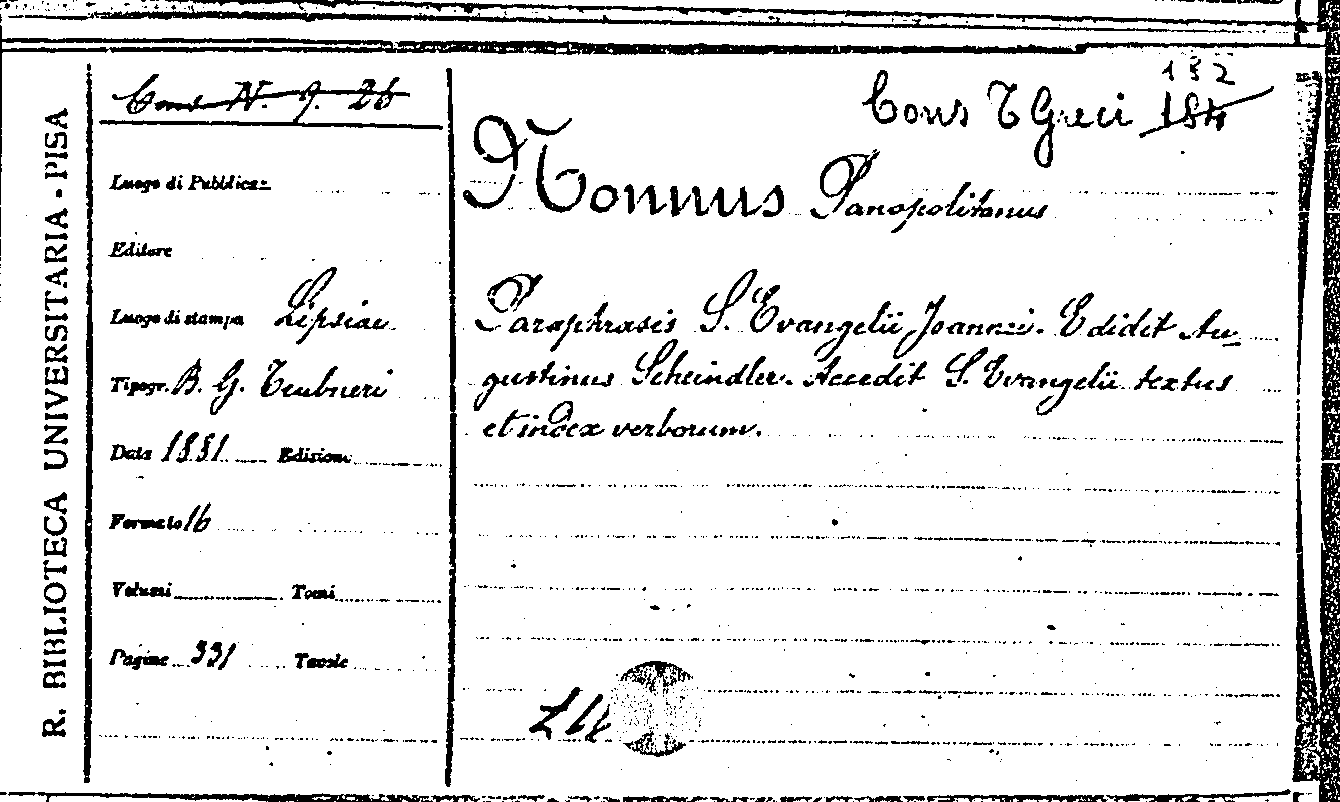 R. BIBLIOTECA UNIVERSITARIA - PISA
Cons N. 9. 26
Cons T Greci 184
132
Nonnus Panopolitanus
Paraphrasis S. Evangelii Joannei. Edidit Au-
gustinus Scheindler. Accedit S. Evangelii textus
et index verborum.
Luogo di Pubblicaz.
Editore
Luogo di stampa Lipsiae
Tipogr. B. G. Teubneri
Data 1881 Edizione
Formato 16
Volumi Tomi
Pagine 331 Tavole